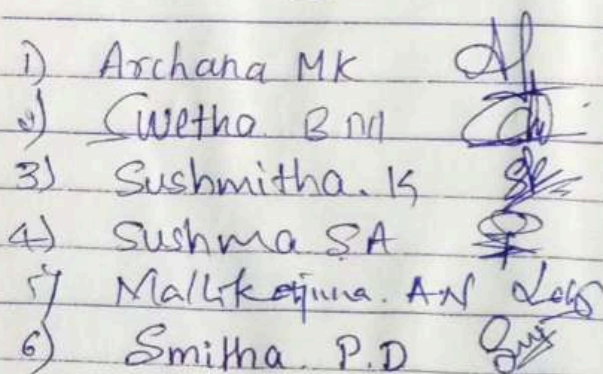 1) Archana MK
2) Swetha. B M
3) Sushmitha. K
4) Sushma SA
5) Mallikarjuna. A.N
6) Smitha. P.D